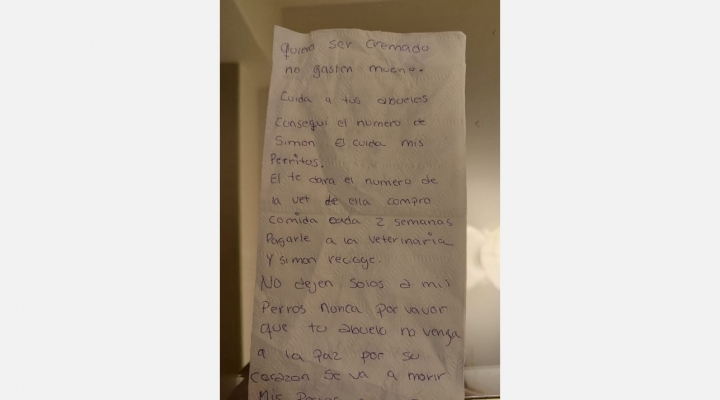 Quiero ser cremado
no gasten mucho.
Cuida a tus abuelos
Consegui el numero de
Simon el cuida mis
Perritas.
El te dara el numero de
la vet de ella compro
comida cada 2 semanas
Pagarle a la veterinaria
Y simon recoge.
NO dejen solos a mis
Perros nunca por vavor
que tu abuelo no venga
a la Paz por su
corazon se va a morir
Mis